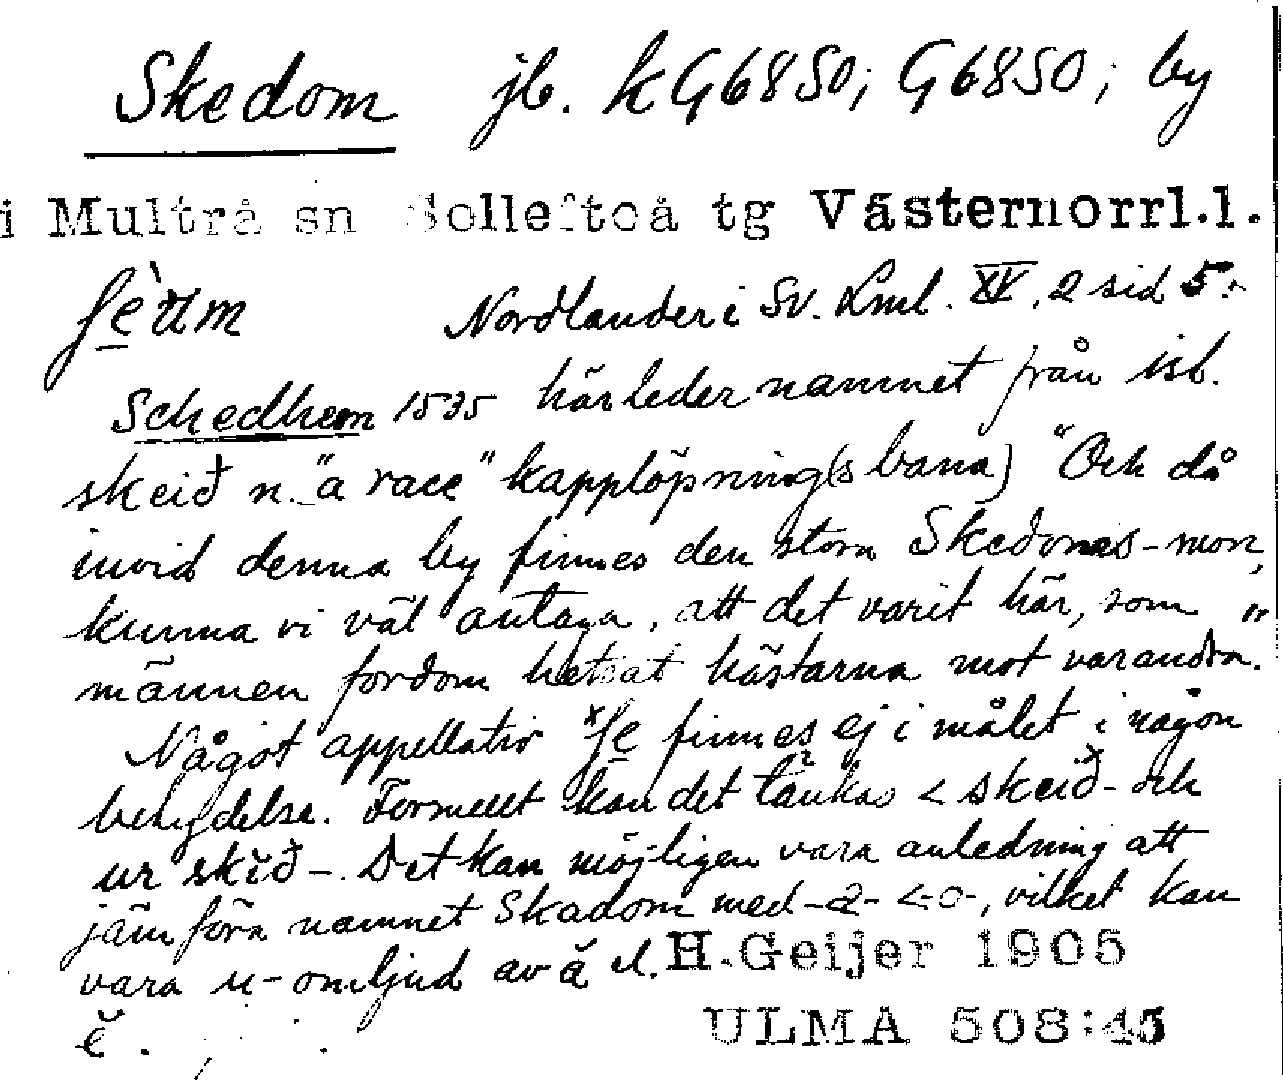 Skedom jb. kG6850; G6850; by
i Multrå sn Sollefteå tg Västernorrl.l.
ʃèum Nordlander i Sv. Lml. XV, 2 sid 5.
Schedhem 1535 härleder namnet från isl.
skeið n. "a race" kapplöpning(s bana) "Och då
invid denna by finnes den stora Skedoms-mon,
kunna vi väl antaga, att det varit här, som
männen fordom hetsat hästarna mot varandra."
Något appellativ *ʃe finnes ej i målet i någon
betydelse. Formellt kan det tänkas < skeið- och
ur skĭð-. Det kan möjligen vara anledning att
jämföra namnet Skadom med -a- < -o-, vilket kan
vara u-omljud av ă el. H.Geijer 1905
ĕ.
ULMA 508:45